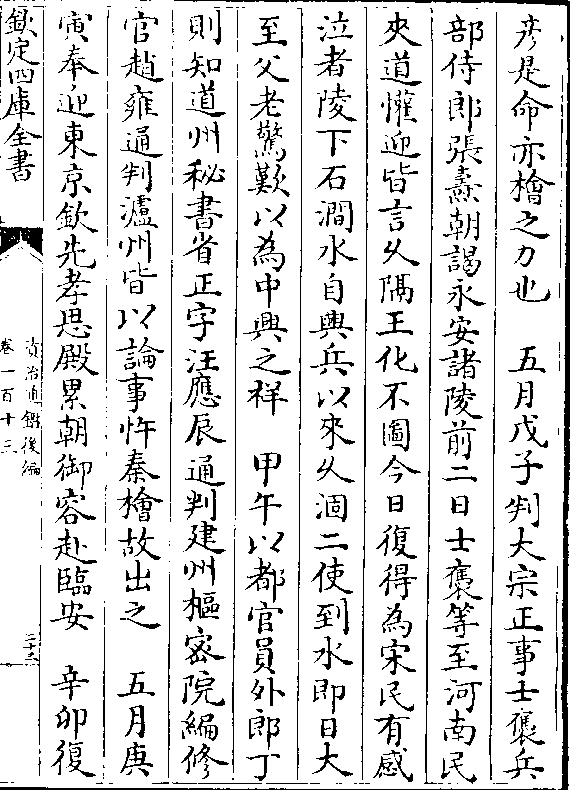 彦是命亦檜之力也　五月戊子判大宗正事士㒟兵
部侍郎張燾朝謁永安諸陵前二日士㒟等至河南民
夾道懽迎皆言乆隔王化不圖今日復得為宋民有感
泣者陵下石澗水自興兵以來乆涸二使到水即日大
至父老驚歎以為中興之祥　甲午以都官員外郎丁
則知道州秘書省正字汪應辰通判建州樞密院編修
官趙雍通判瀘州皆以論事忤秦檜故出之　五月庚
寅奉迎東京欽先孝思殿累朝御容赴臨安　辛卯復
欽定四庫全書
資治通鑑後編
卷一百十三
二十三